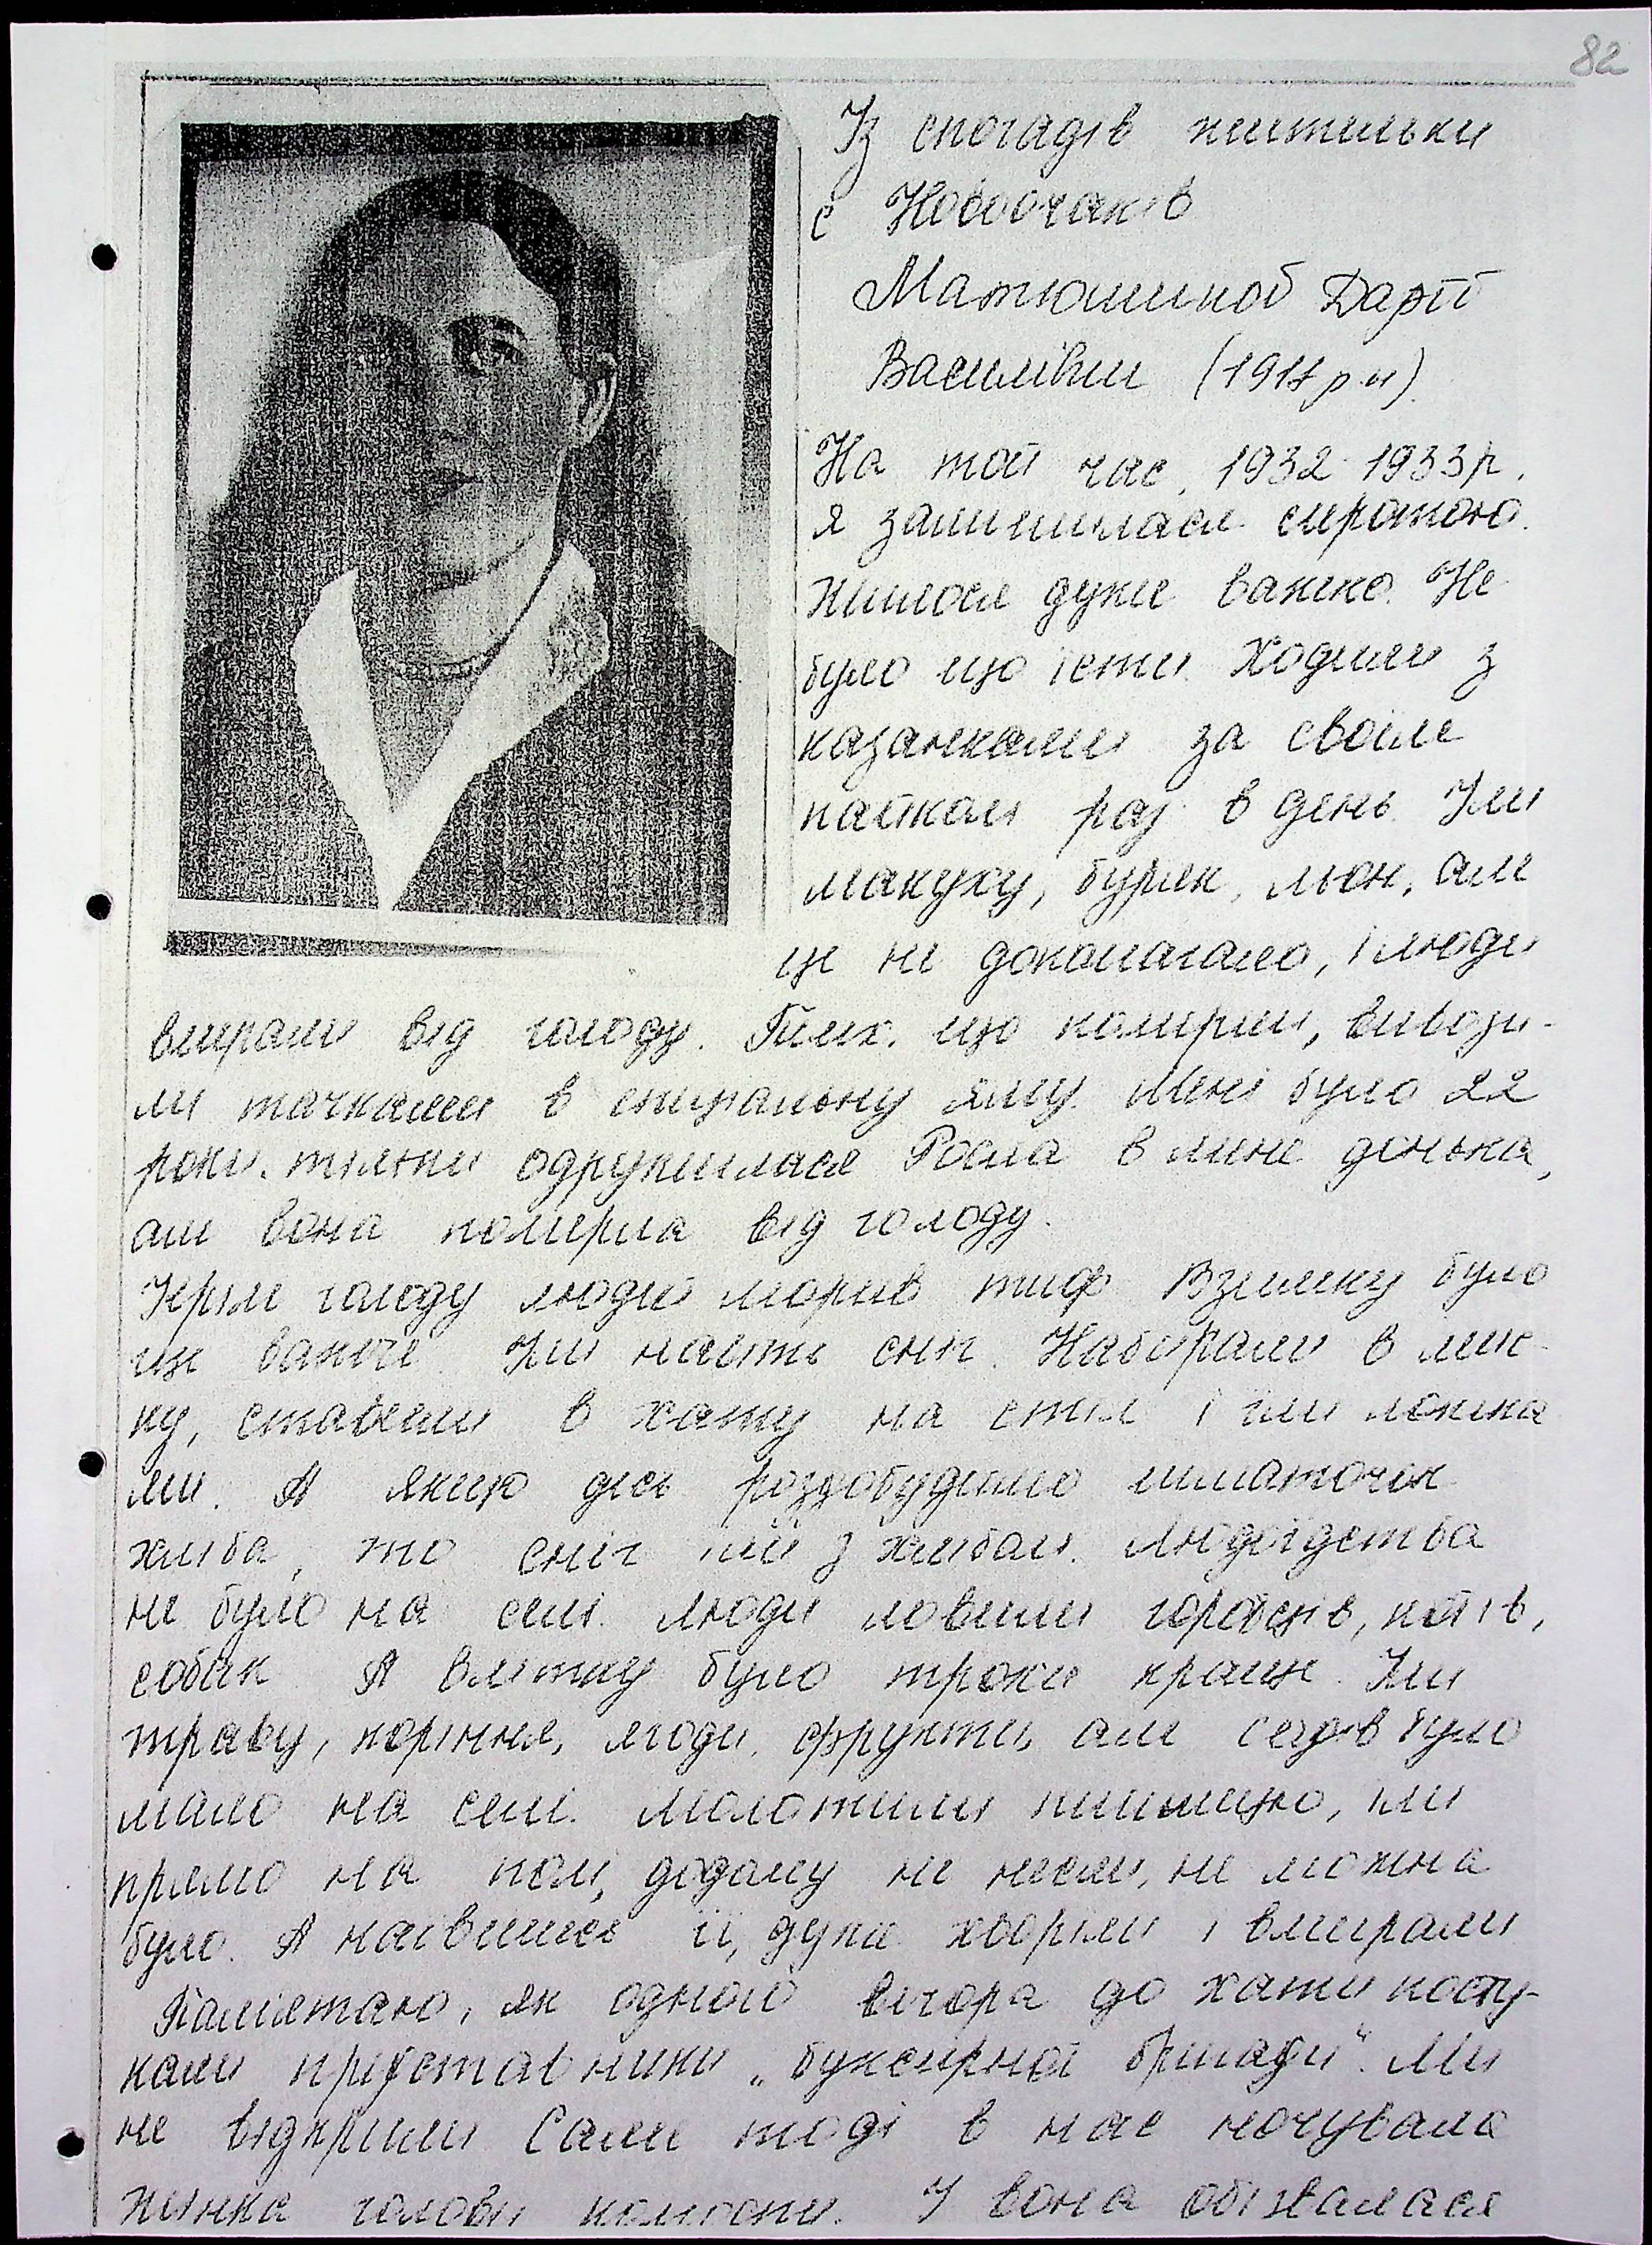 82
Із спогадів жительки
с Новоочаків
Матюшиной Дарії
Василівни (1911 р.н).
На той час, 1932-1933р.
я залишилася сиротою.
Жилося дуже важко. Не
було що їсти. Ходили з
казанками за своїм
пайком раз в день. Їли
макуху, буряк, льон, але
це не допомагало, і люди
вмирали від голоду. Тих, що померли, вивози-
ли тачками в спиральну яму. Мені було 22
роки, тільки одружилася. Росла в мене донька,
але вона померла від голоду.
Крім голоду людей морив тиф. Взимку було
ще важче. Їли навіть сніг. Набирали в мис-
ку, ставили в хату на стіл і їли ложка
ми. А якщо десь роздобудемо шматочек
хліба, то сніг їли з хлібом. Людоїдства
не було на селі. Люди ловили горобців, котів,
собак. А влітку було трохи краще. Їли
траву, коріння, ягоди, фрукти, але садів було
мало на селі. Молотили пшеницю, їли
прямо на полі, додому не несли, не можна
було. А наївшись її, дуже хворіли і вмирали.
Памятаю, як одного вечора до хати посту-
кали представники „буксирної бригади". Ми
не відкрили. Саме тоді в нас ночувала
жінка голови колгоспу. І вона обізвалася